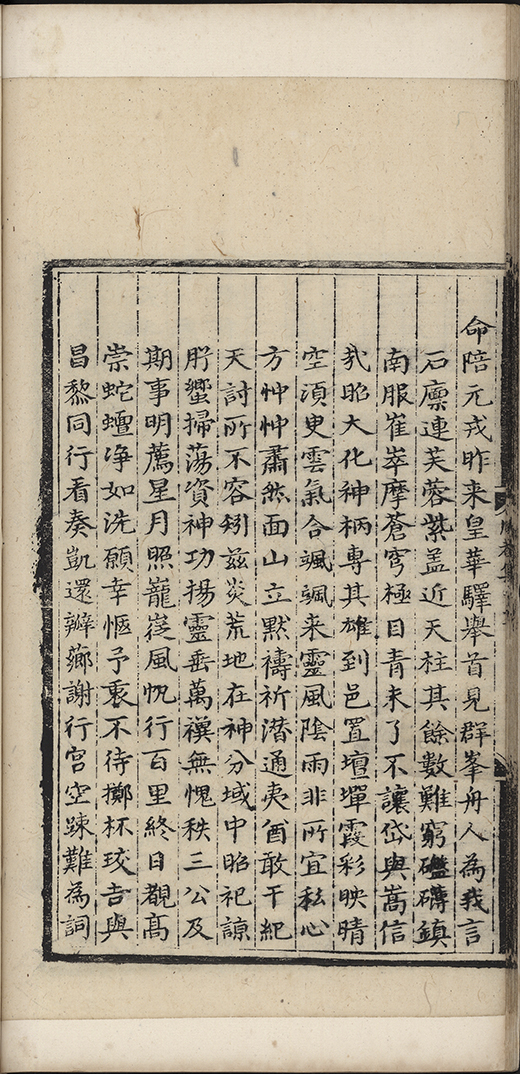 命陪元戎昨来皇華驛舉首見群峯舟人為我言
石廩連芙蓉紫盖近天柱其餘數難窮礚礴鎮
南服崔崒摩蒼穹極目青未了不讓岱與嵩信
哉昭大化神柄專其雄到邑置壇墠霞彩映晴
空湏臾雲氣合颯颯来靈風陰雨非所宜私心
方忡忡肅然面山立默禱祈潜通夷酋敢干紀
天討所不容矧茲炎荒地在神分域中昭祀諒
肸蠁掃蕩資神功揚靈垂萬禩無愧秩三公及
期事明薦星月照巃嵸風忱行百里終日覩髙
崇蛇蟺净如洗願幸愜予衷不待擲杯珓吉與
昌黎同行看奏凱還瓣薌謝行宮空踈難為詞